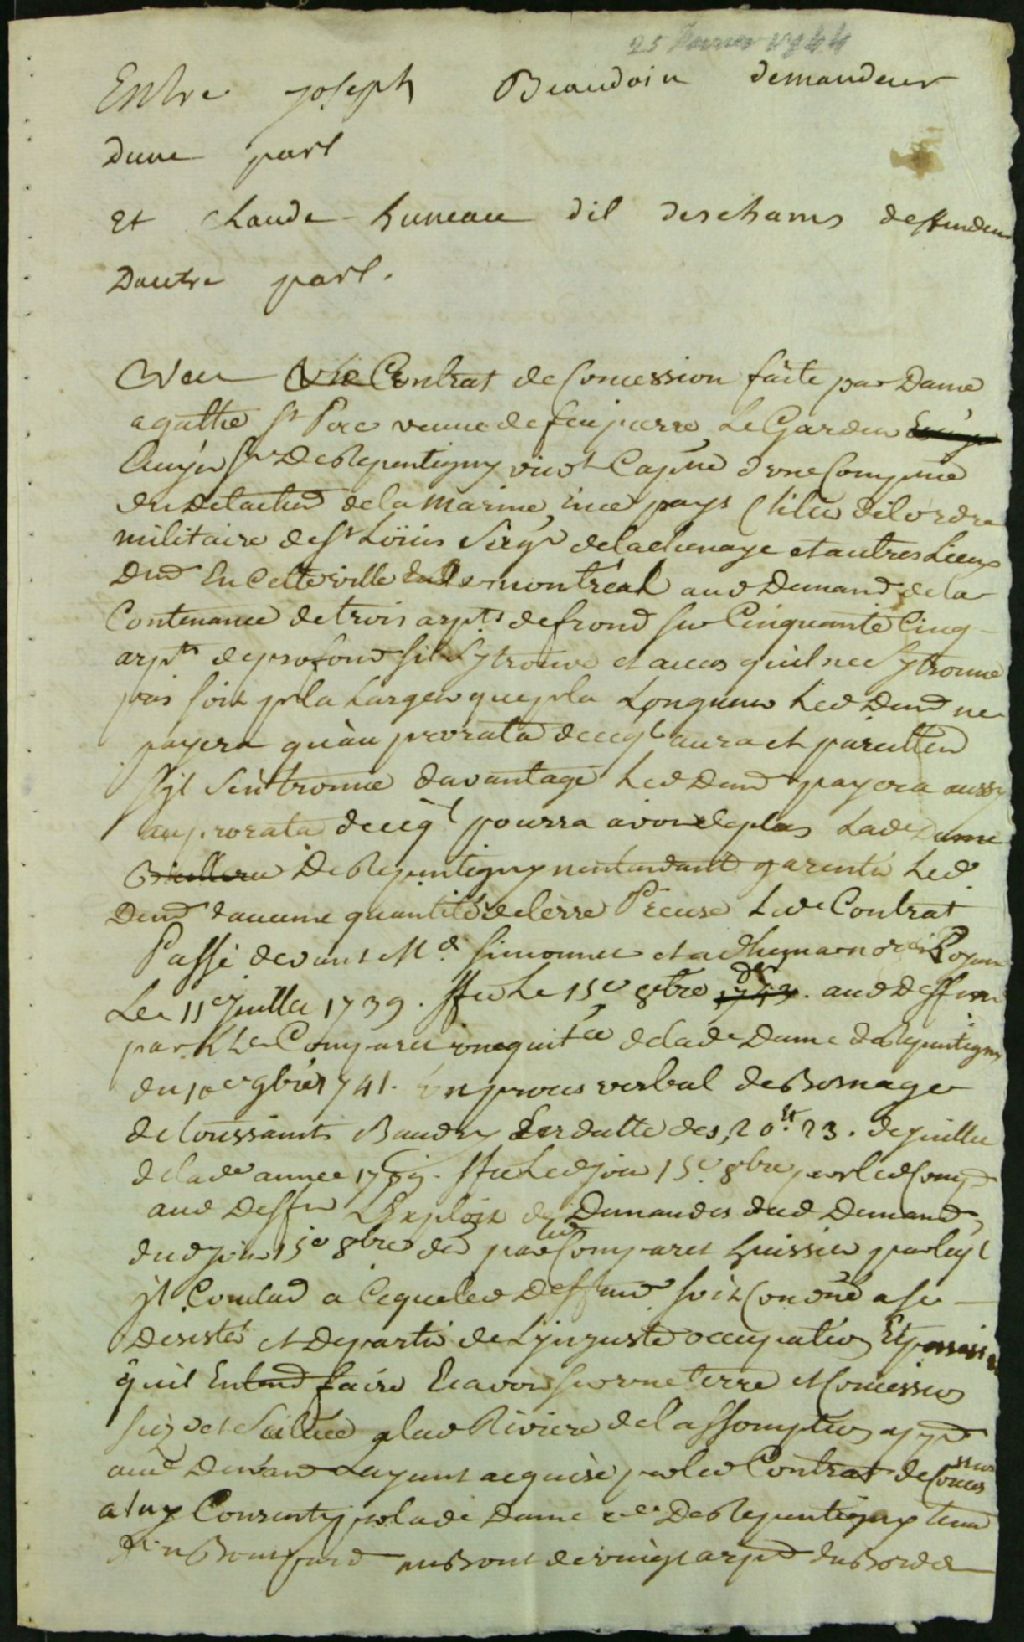 25 fevrier 1744
Entre joseph Beaudoin demandeur
Dune part
Et Claude huneau dit deschams deffendeur
Dautre part.
Veu Contrat de Concession faite par Dame
agathe St Pere veuve de feu pierre LeGardeur
Cuyer Sr DeRepentigny viv.t Cap.ne d'une Compagnie
du detachem.t de la marine, en ce pays Ch.lier de l'ordre
militaire de St Loüis Seig.r de lachenaye et autres Lieux
Dem.t En cette ville de montréal aud Demand.r de la
Contenance de trois arp.ts de frond sur Cinquante Cinq
arp.ts de profond.r sil sy trouve et au cas quil ne sy trouve
pas soit p.r la Largeur que p.r la Longueur Led Dem.d ne
payera qu'au prorata de ceq.l aura et pareillem.t
syl s'en trouve davantage Led Dem.d payera aussy
au prorata de ceq.l pourra avoir de plus Lade Dame
DeRepentigny nentendant garentir Led.
Dem.d d'aucune quantité de terre Precise Led Contrat
Passé devant M.e Simonnet et adhemar no.res Royaux
Le 11e juillet 1739. Sig.e Le 15e 8bre der aud Deffen
par Le Comparet une quit.ce de lade Dame deRepentigny
du 10e 9bre 1741. Un procès verbal de Bornage
de toussaints Baudry En datte des 20 et 23. de juillet
de lade année Sig.e Led jour 15e 8bre par led Comp.t
aud Deff.r L'Exploit de Demandes dud Demand.r
dud jour 15e 8bre der par led Comparet huissier par leq.l
yl Conclud a Ceque led Deffend.r soit Condné a se
desister et departir de L'injuste occupation Et
quil Entend faire Et avoir sur une terre et Concession
size et Scituée a lad Riviere de l'assomption app.t
aud Demand.r Layant acquise par led Contrat de Concession
a luy Consenty par lade Dame v.e DeRepentigny
au Bout de vingt arp.ts du Bord de